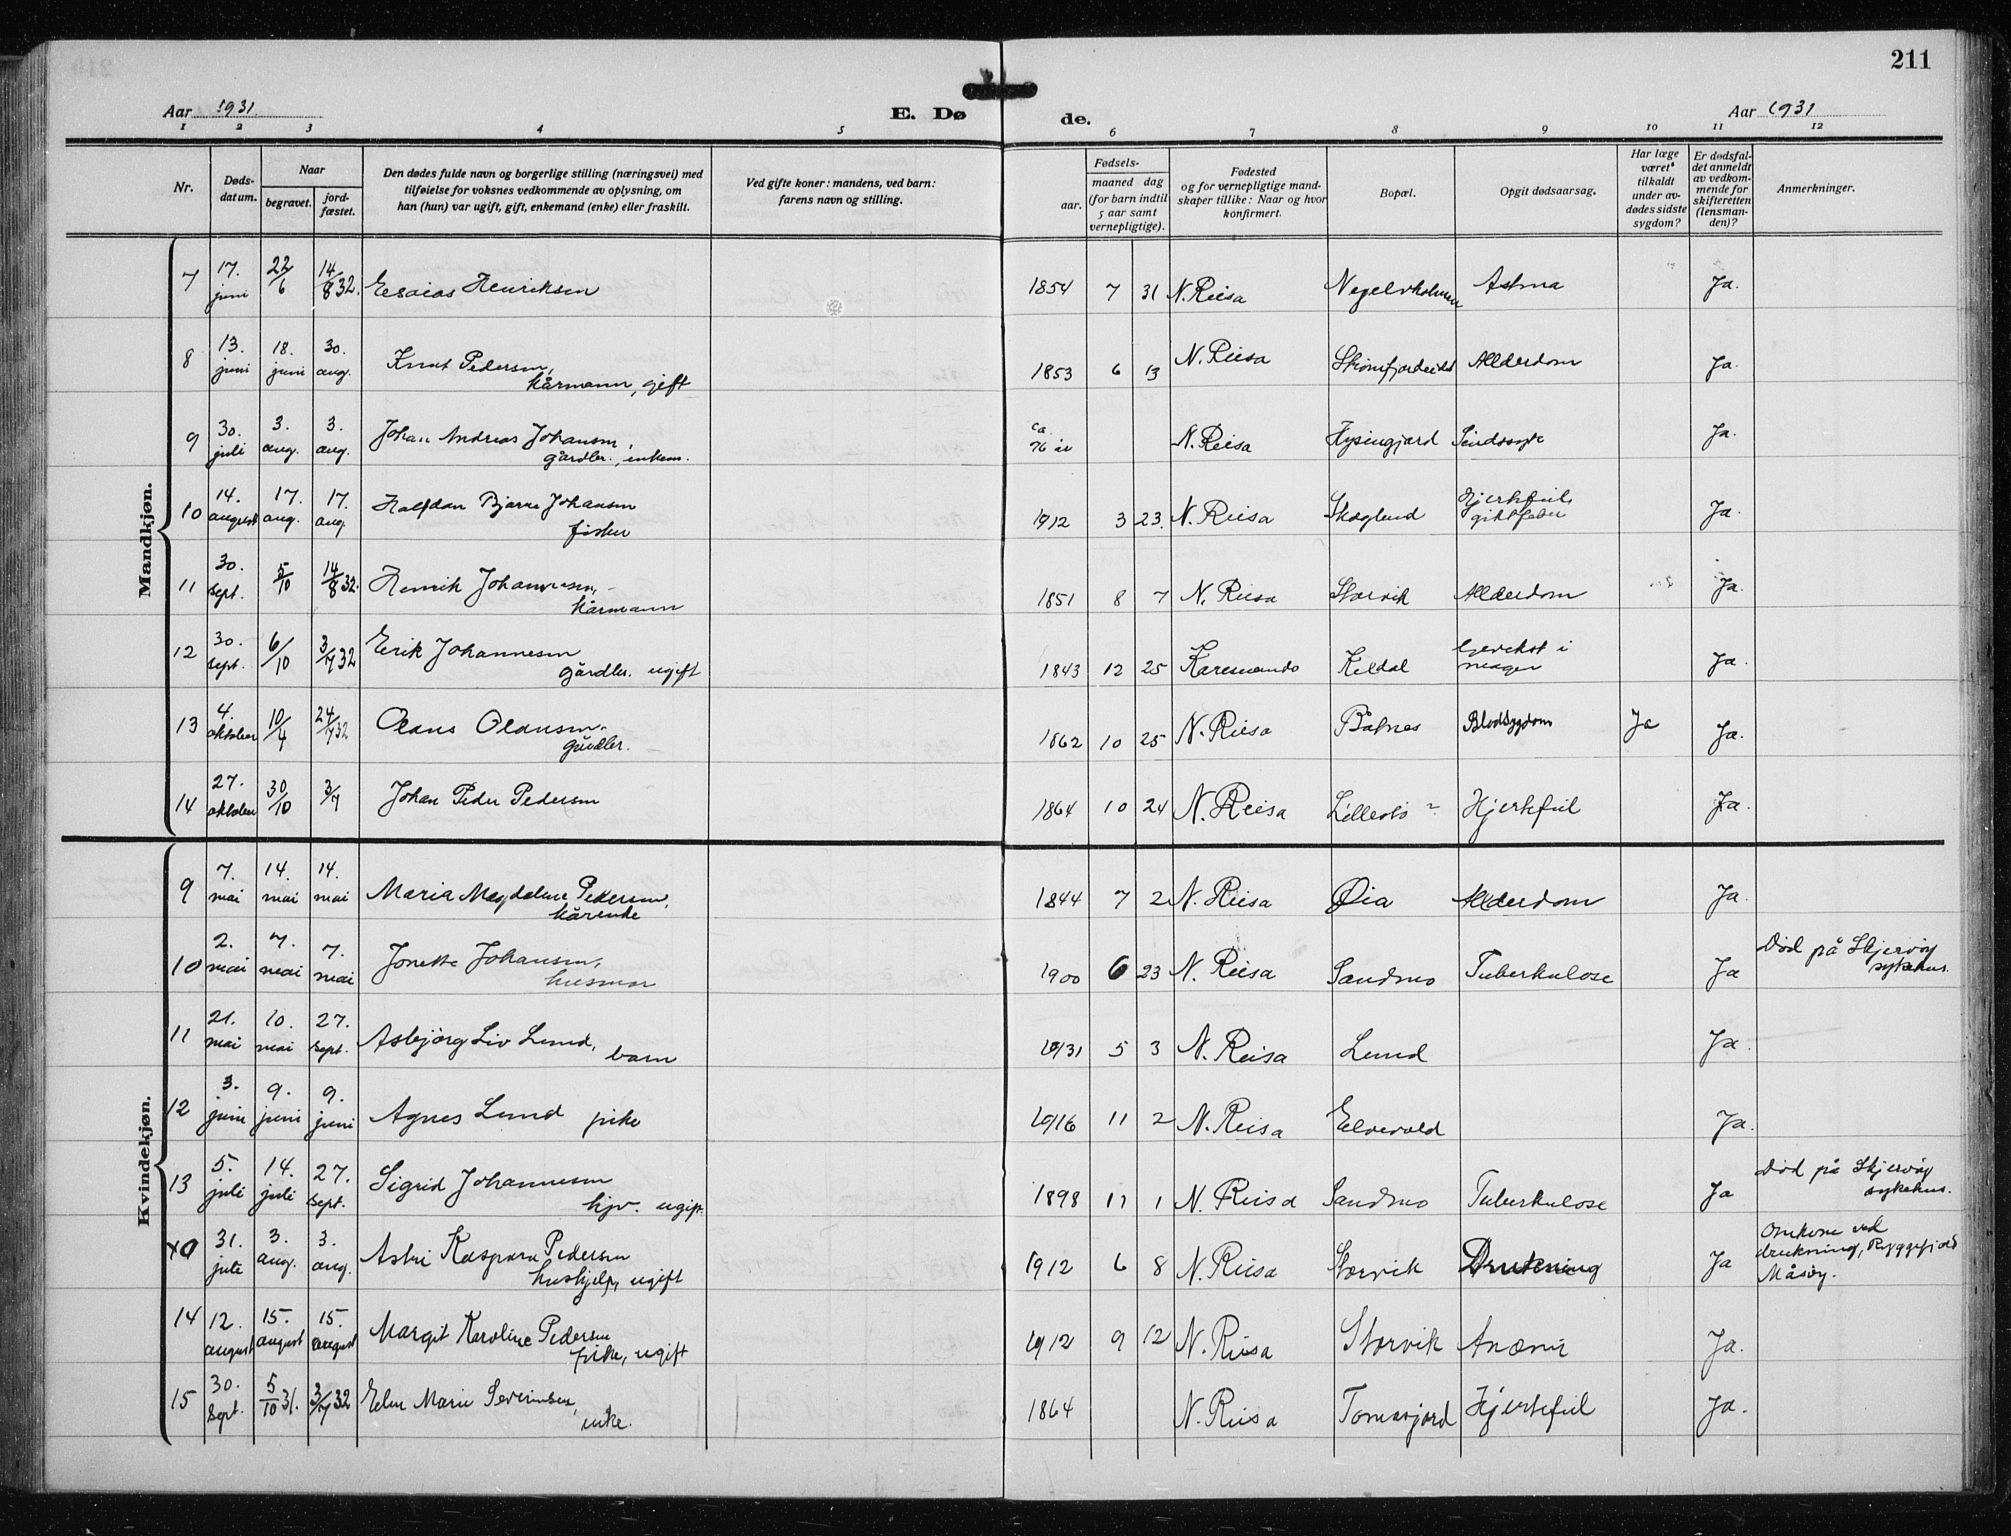 211
Aar 1931
E. Dø
de.
Aar 1931
1 2 3 4 5 6 7 8 9 10 11 12
Nr.
Døds-
datum.
Naar
begravet.
jord-
fæstet.
Den dødes fulde navn og borgerlige stilling (næringsvei) med
tilføielse for voksnes vedkommende av oplysning, om
han (hun) var ugift, gift, enkemand (enke) eller fraskilt.
Ved gifte koner: mandens, ved barn:
farens navn og stilling.
Fødsels-
aar.
maaned dag
(for barn indtil
5 aar samt
vernepligtige).
Fødested
og for vernepligtige mand-
skaper tillike: Naar og hvor
konfirmert.
Bopæl.
Opgit dødsaarsag.
Har læge
været
tilkaldt
under av-
dødes sidste
sygdom?
Er dødsfal-
det anmeldt
av vedkom-
mende for
skifteretten
(lensman-
den)?
Anmerkninger.
Mandkjøn.
7 17. juni 22/6 14/8 32. Esaias Henriksen 1854 7 31 N. Reisa Astma Ja.
8 13. juni 18. juni 30. aug. Knut Pedersen,
kårmann, gift 1853 6 13 N. Reisa Alderdom Ja.
9 30. juli 3. aug. 3. aug. Johan Andreas Johansen,
gårdbr., enkem. ca. 76 år N. Reisa Sindssyk Ja.
10 14. august 17. aug. 17. aug. Halfdan Bjarne Johansen
fisker 1912 3 23. N. Reisa Skoglund Hjertefeil,
giktfeber Ja.
11 30. sept. 5/10 14/8 32. Henrik Johannesen,
kårmann 1851 8 7 N. Reisa Storvik Alderdom Ja.
12 30. sept. 6/10 3/7 32 Erik Johannesen
gårdbr. ugift 1843 12 25 Karesuando Kildal i
magen Ja.
13 4. oktober 10/4 24/7 32 Olaus Olausen.
gårdbr. 1862 10 25 N. Reisa Båtnes Blodsygdom Ja Ja.
14 27. oktober 30/10 3/7 Johan Peder Pedersen 1864 10 24 N. Reisa Hjertefeil Ja.
Kvindekjøn.
9 7. mai 14. mai 14. mai Maria Magdalene Pedersen,
kårenke 1844 7 2 N. Reisa Øia Alderdom Ja.
10 2. mai 7. mai 7. mai Jonette Johansen,
husmor 1900 6 23 N. Reisa Sandmo Tuberkulose Ja Död på Skjervöy
sykehus.
11 21. mai 10. mai 27. sept. Asbjörg Liv Lund, barn 1931 5 3 N. Reisa Lund Ja.
12 3. juni 9. juni 9. juni Agnes Lund pike 1916 11 2 N. Reisa Elvevold Ja.
13 5. juli 14. juli 27. sept. Sigrid Johannesen
hjv. ugift. 1898 11 1 N. Reisa Sandmo Tuberkulose Ja Död på Skjervöy
sykehus.
31. juli 3. aug. 3. aug. Astri Kaspara Pedersen
hushjelp, ugift 1912 6 8 N. Reisa Storvik Drukning Ja Omkom ved
drukning, Ryggefjord
Måsöy.
14 12. august 15. august 15. august Margit Karoline Pedersen
pike, ugift 1912 9 12 N. Reisa Storvik Anæmi Ja.
15 30. sept. 5/10 31. 3/7 32 Elen Marie Severinsen,
enke. 1864 N. Reisa Hjertefeil Ja.